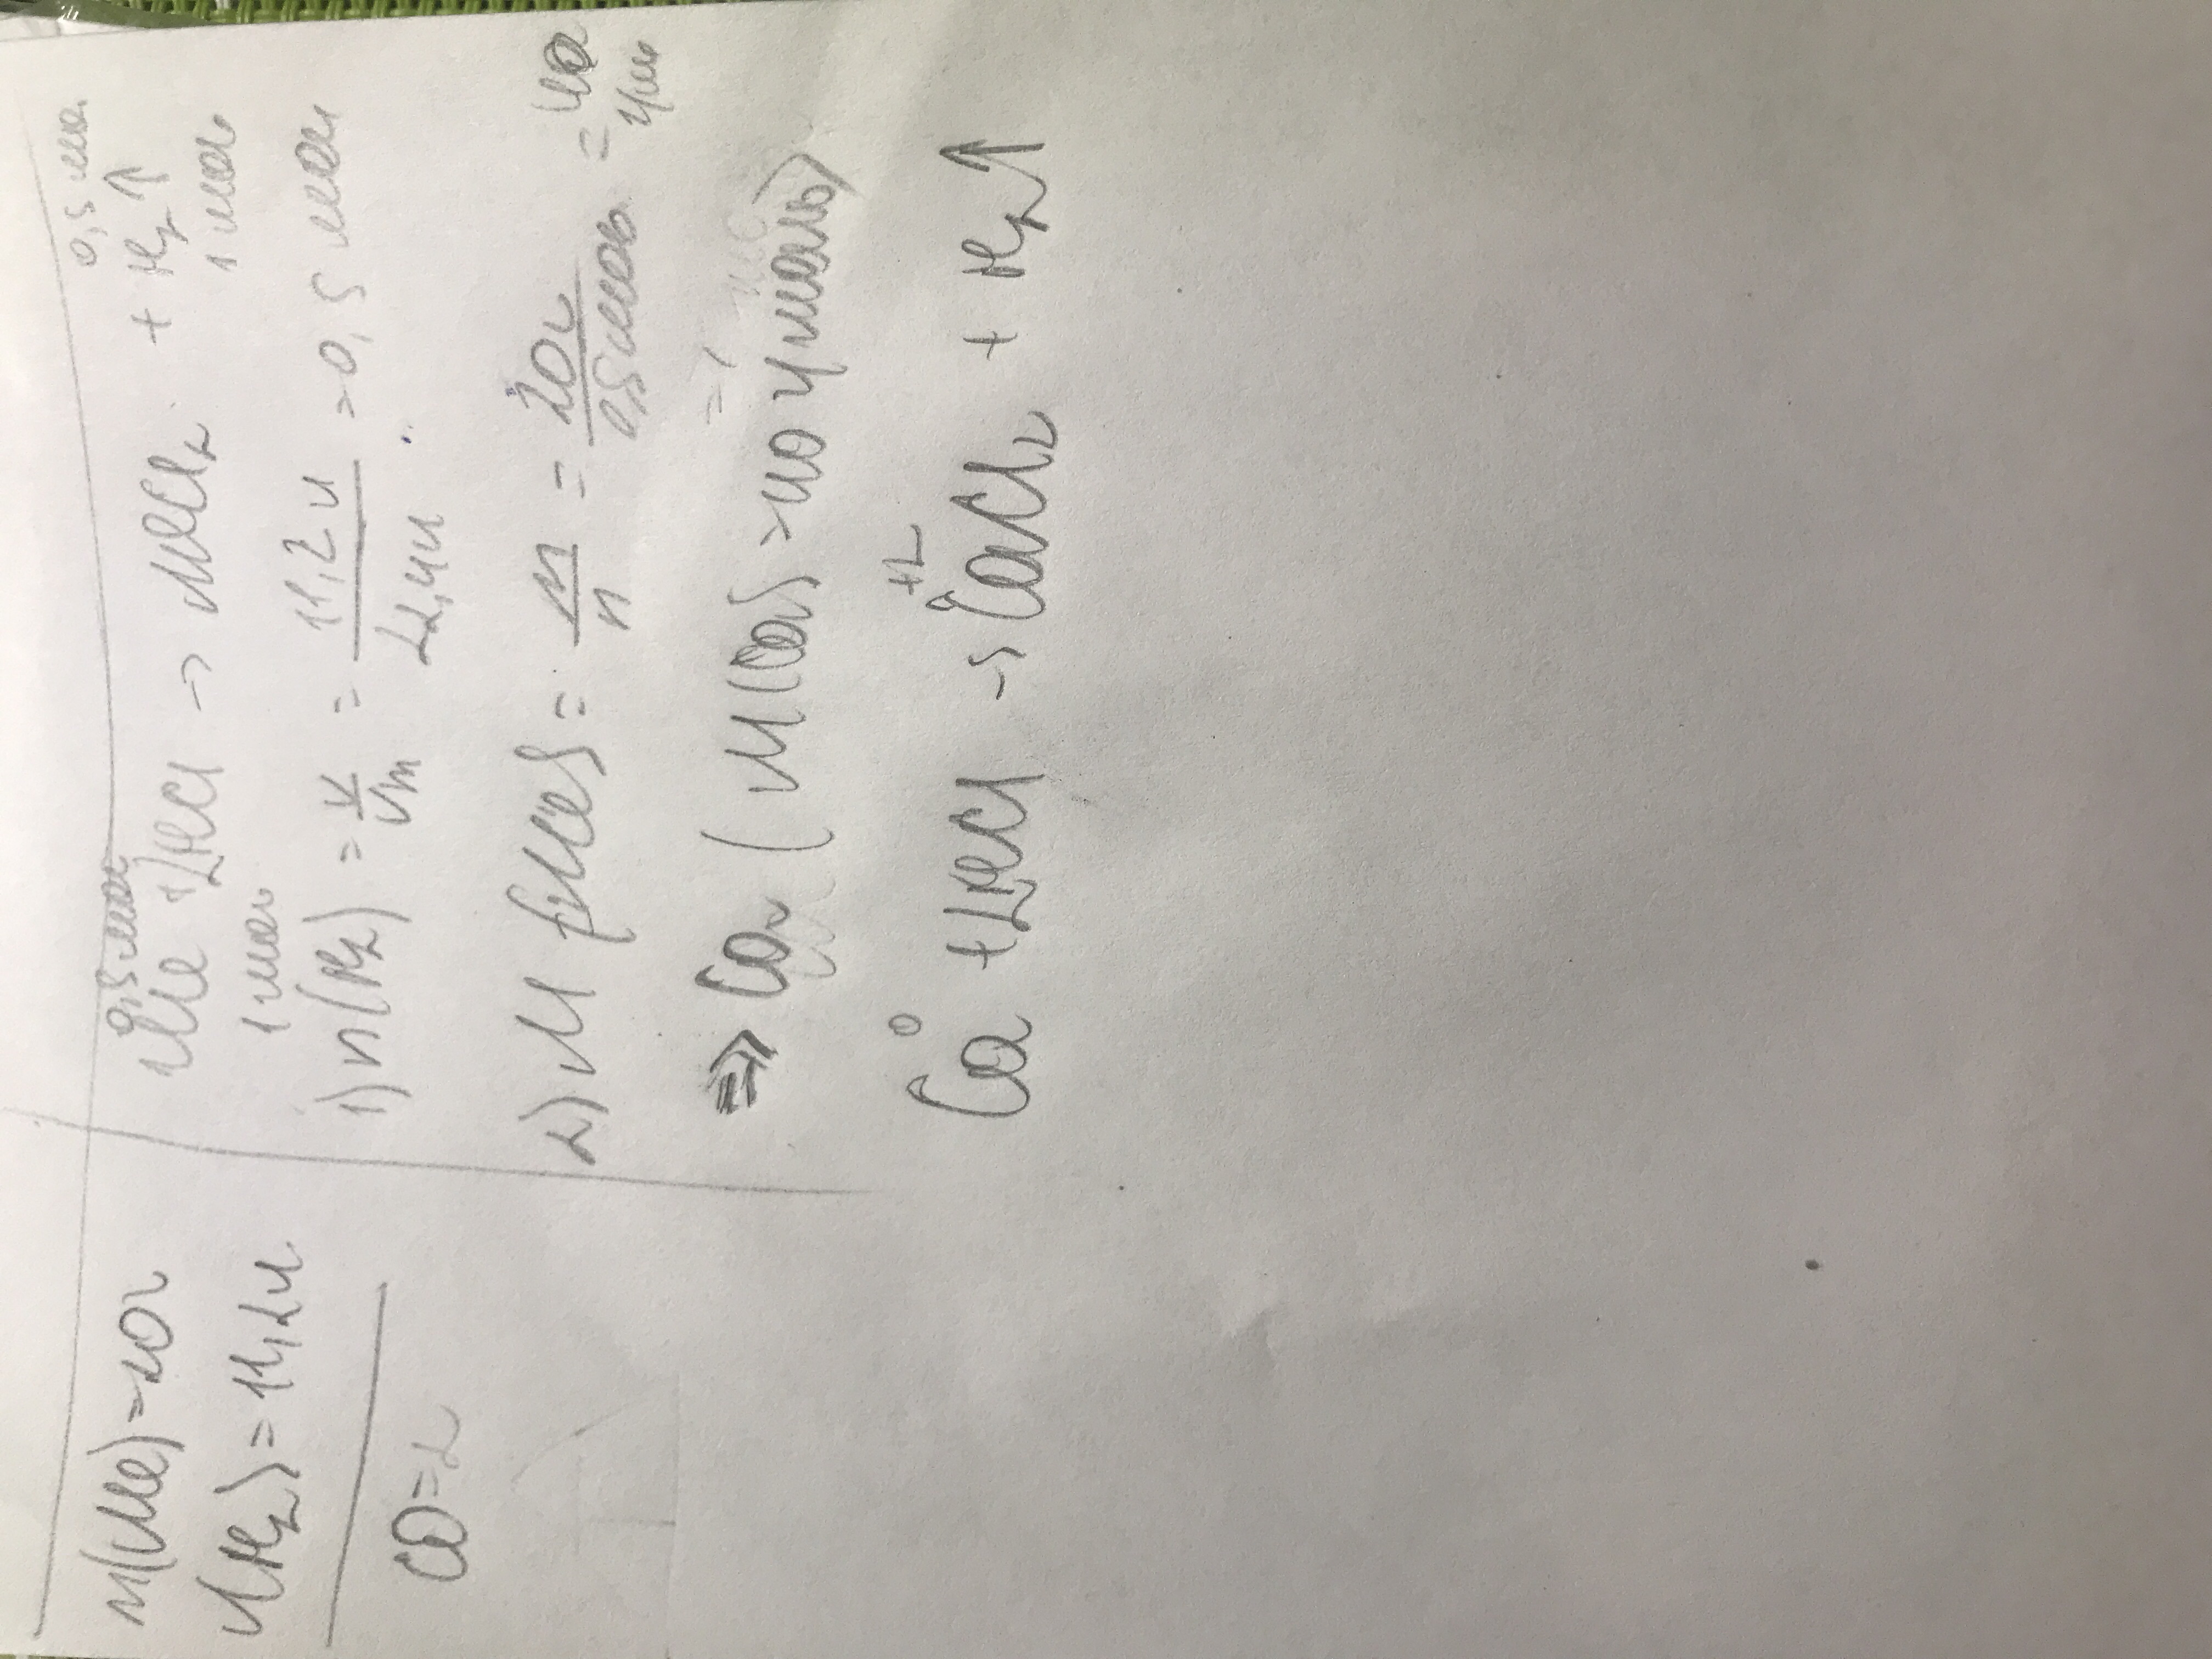 m(Me)=20г
V(H₂)=11,2л
CO=2
0,5 моль 0,5 мо
Me +2HCl → MeCl₂ + H₂↑
1 моль 1 моль
1) n(H₂) = V/Vm = 11,2л/22,4л = 0,5 мол
2) M (Me) = m/n = 20г/0,5моль = 40 г/м
⇒ Ca (M(Ca) = 40 г/моль)
0 +2
Ca +2HCl → CaCl₂ + H₂↑